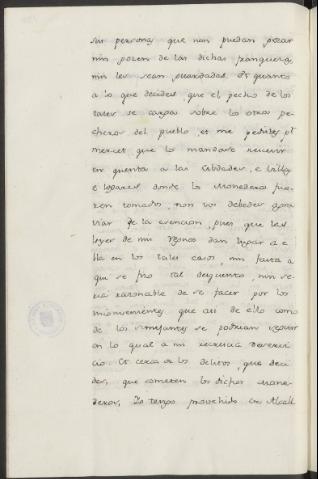 sus personas que non puedan gozar
nin gozen de las dichas franquezas,
nin les sean guardadas. Et quanto
a lo que decides, que el pecho de los
tales se carga sobre los otros pe-
cheros del pueblo, et me pedides por
merced que lo mandase recevir
en quenta a las Cibdades, e Villas
e logares donde los Monederos fue-
ren tomados, non vos debedes agra-
viar de la esencion, pues que las
leyes de mis Regnos dan lugar a e-
lla en los tales casos, nin fasta a-
qui se fizo tal desquento, nin se-
ria razonable de se facer por los
inconvenientes, que asi de ello como
de los semejantes se podrian seguir
en lo qual a mi recrecia deservi-
cio. Et cerca de los delitos, que deci-
des, que cometen los dichos Mone-
deros, Yo tengo provehido en Alcalá